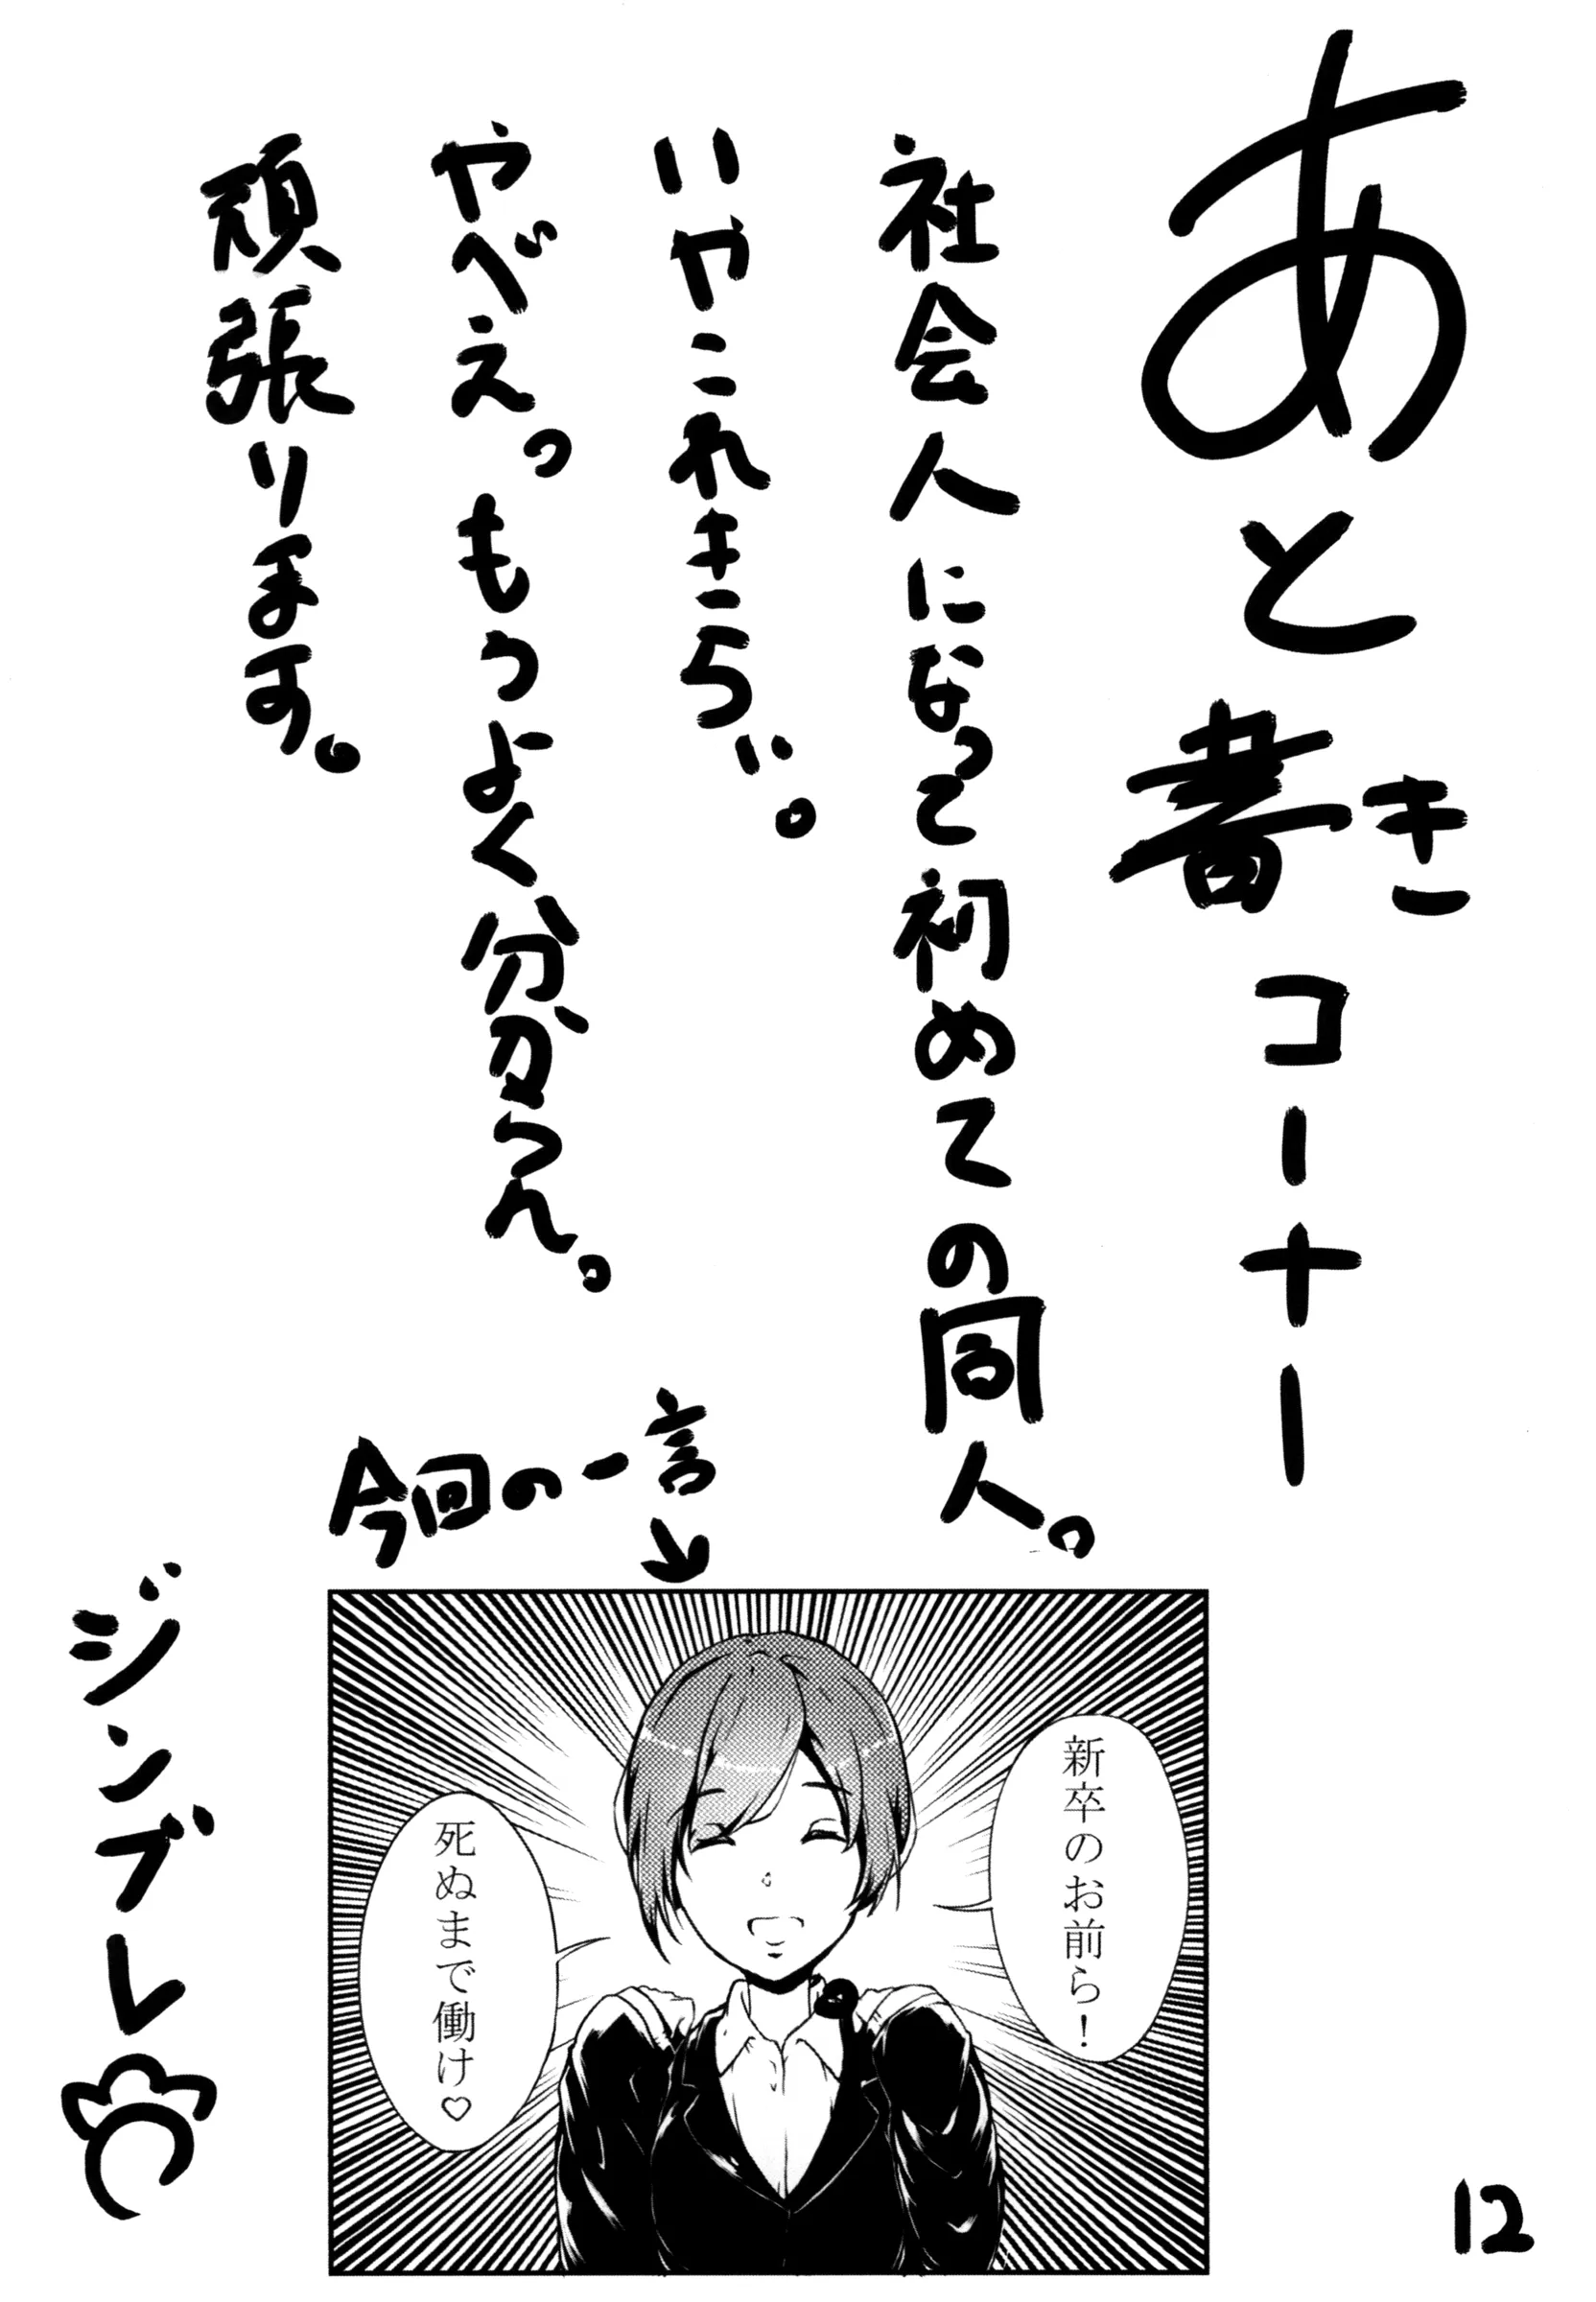 あと書きコーナー
社会人になって初めての同人。
いやこれキラい。
やべえっ。もうよく分からん。
頑張ります。
今回の一言↓
新卒のお前ら!
死ぬまで働け♡
ジンブレ
12